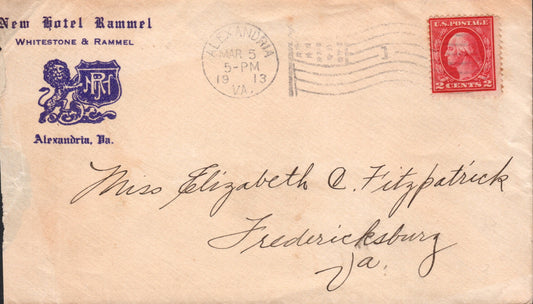 New Hotel Rammel
WHITESTONE & RAMMEL
NRH
Alexandria, Va.
ALEXANDRIA
MAR 5
5-PM
1913
VA.
1
U.S. POSTAGE
2 CENTS 2
Miss Elizabeth C. Fitzpatrick
Fredericksburg
Va.